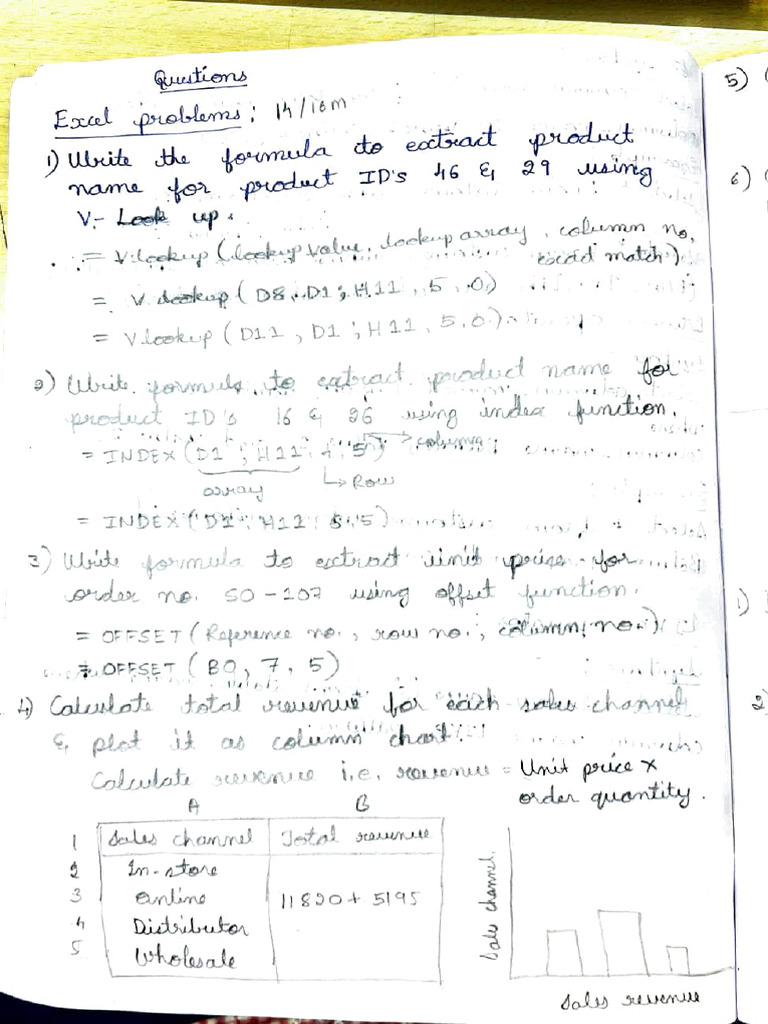 Questions
Excel problems: 14/16m
1) Write the formula to extract product
name for product ID's 46 & 29 using
V-Look up.
= V.lookup (lookup value, lookup array, column no,
exact match)
= V.lookup ( D8, D1;H11, 5, 0)
= V.lookup ( D11, D1;H11, 5, 0)
2) Write formula to extract product name for
product ID's 16 & 26 using index function.
= INDEX (D1;H11, 4, 5) → column
array → Row
= INDEX (D1;H11, 5)
3) Write formula to extract unit price for
order no. SO-107 using offset function.
= OFFSET (Reference no., row no., column no.)
= OFFSET ( B0, 7, 5)
4) Calculate total revenue for each sales channel
& plot it as column chart.
Calculate revenue i.e. revenue = Unit price x
order quantity.
A B
1 Sales channel Total revenue
2 In-store
3 Online 11820 + 5195
4 Distributor
5 Wholesale
Sales channel.
Sales revenue
5)
6)
1)
2)